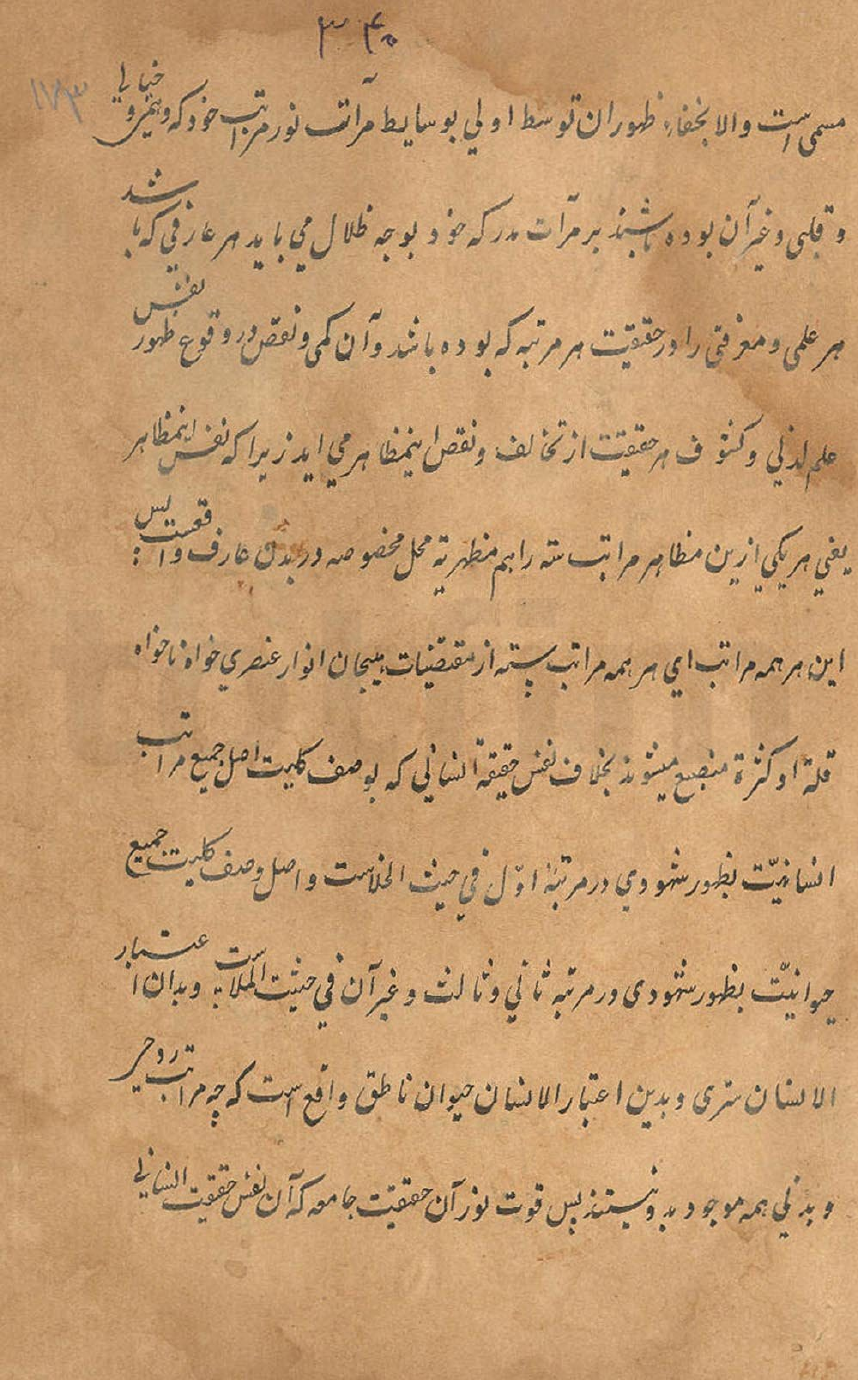 ۳۴۰
۱۷۳
مسمی است والا بخفاء ظهوران توسط اولی بوسایط مرآتب نور مراتب خود که وهمی و خیالی
و قلبی و غیر آن بوده باشند بر مرآت مدرکه خود بوجه ظلال می باید هر عارفی که باشد
هر علمی و معرفتی را در حقیقت هر مرتبه که بوده باشد و آن کمی و نقص در وقوع ظهور نفس
علم لدنی و کشوف هر حقیقت از تخالف و نقص اینمظاهر می اید زیرا که نفس اینمظاهر
یعنی هر یکی ازین مظاهر مراتب سته را هم مظهریة محل مخصوصه در بدن عارف واقعست پس
این هر همه مراتب ای هر همه مراتب سته از مقتضیات هیجان انوار عنصری خواه ناخواه
قلة او کثرة منصبغ میشوند بخلاف نفس حقیقة انسانی که بوصف کلیت اصل جمیع مراتب
انسانیّت بظهور شهودی در مرتبهٔ اوّل فی حیث الخلاست و اصل وصف کلیت جمیع
حیوانیّت بظهور شهودی در مرتبه ثانی و ثالث و غیر آن فی حیثت الملاست و بدان اعتبار
الانسان سری و بدین اعتبار الانسان حیوان ناطق واقع است که چه مراتب روحی
و بدنی همه موجود بدو هستند پس قوت نور آن حقیقت جامعه که آن نفس حقیقت انسانی